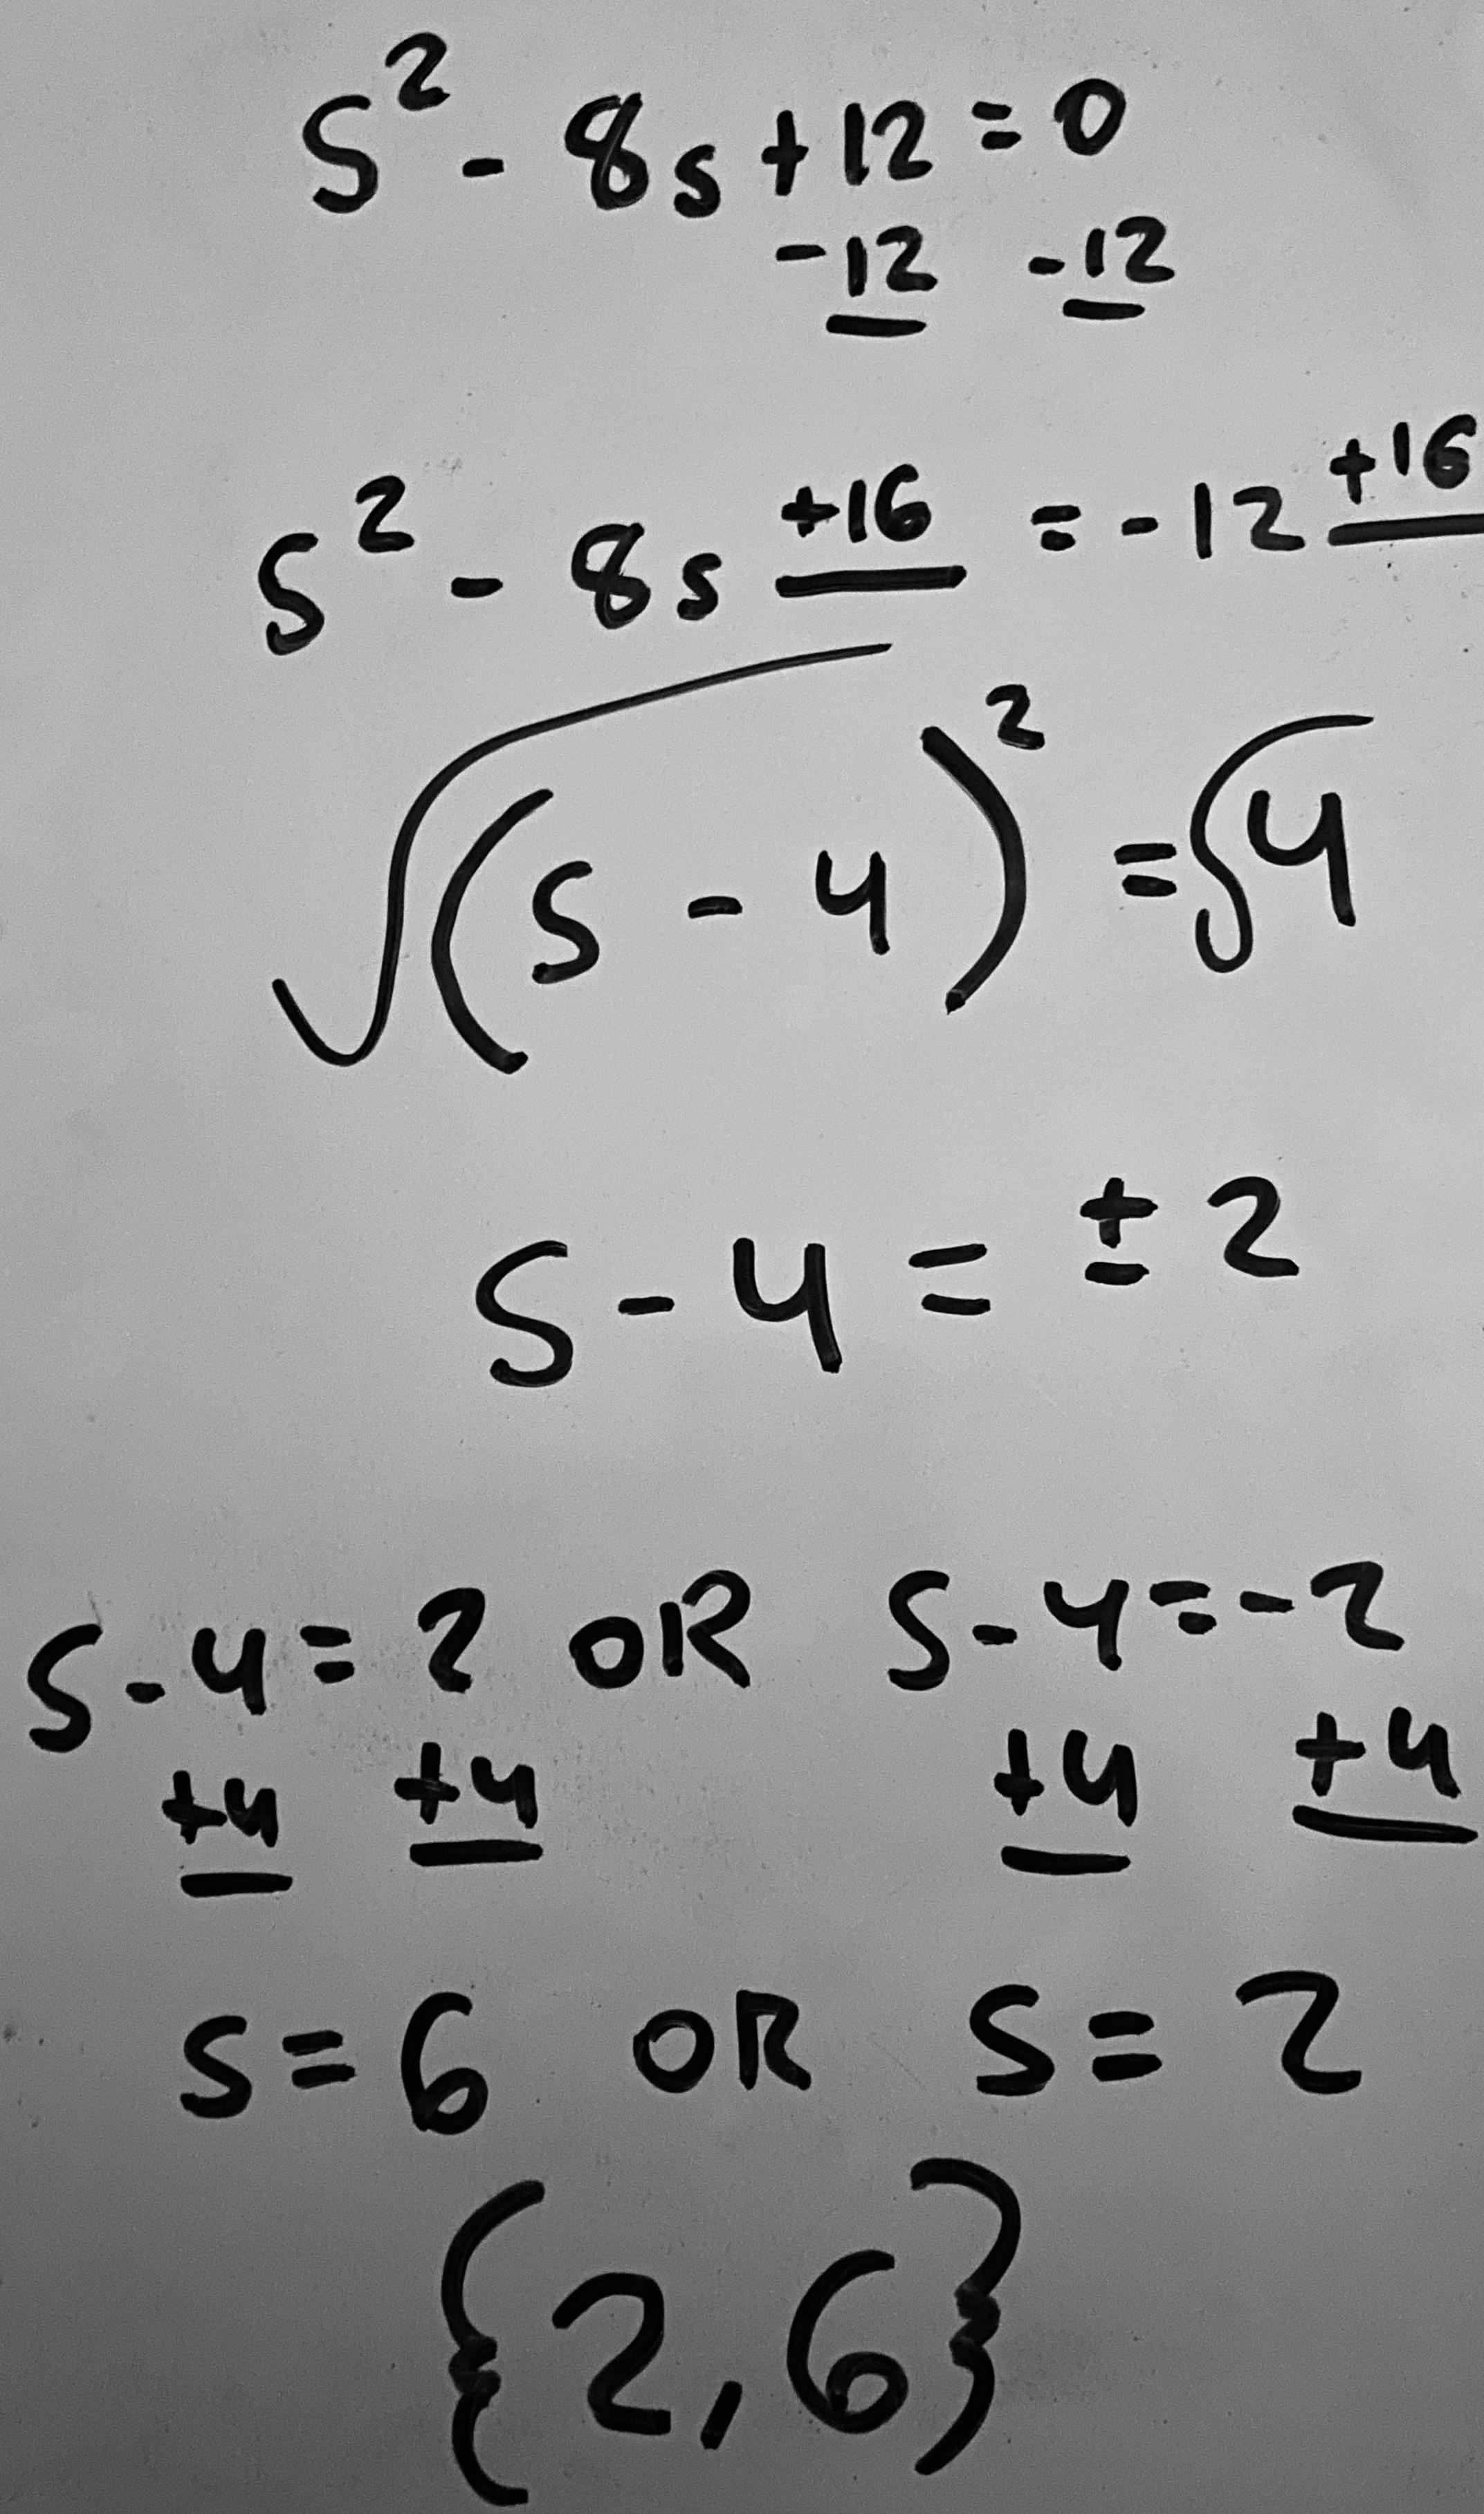 s² - 8s + 12 = 0
-12 -12
s² - 8s +16 = -12 +16
√(s - 4)² = √4
s - 4 = ± 2
s - 4 = 2 OR s - 4 = -2
+4 +4 +4 +4
s = 6 OR s = 2
{2, 6}